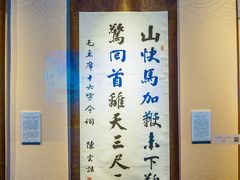 山快馬加鞭未下鞍
驚回首離天三尺
毛主席十六字令詞
陳雲